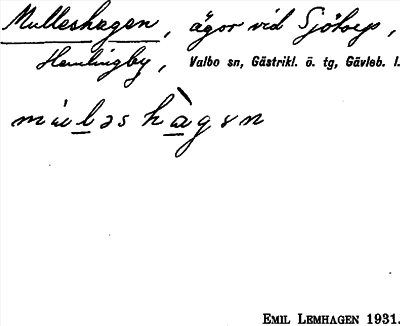 Mulleshagen, ägor vid Sjötorp,
Hemlingby, Valbo sn, Gästrikl. ö. tg, Gävleb. l.
EMIL LEMHAGEN 1931.